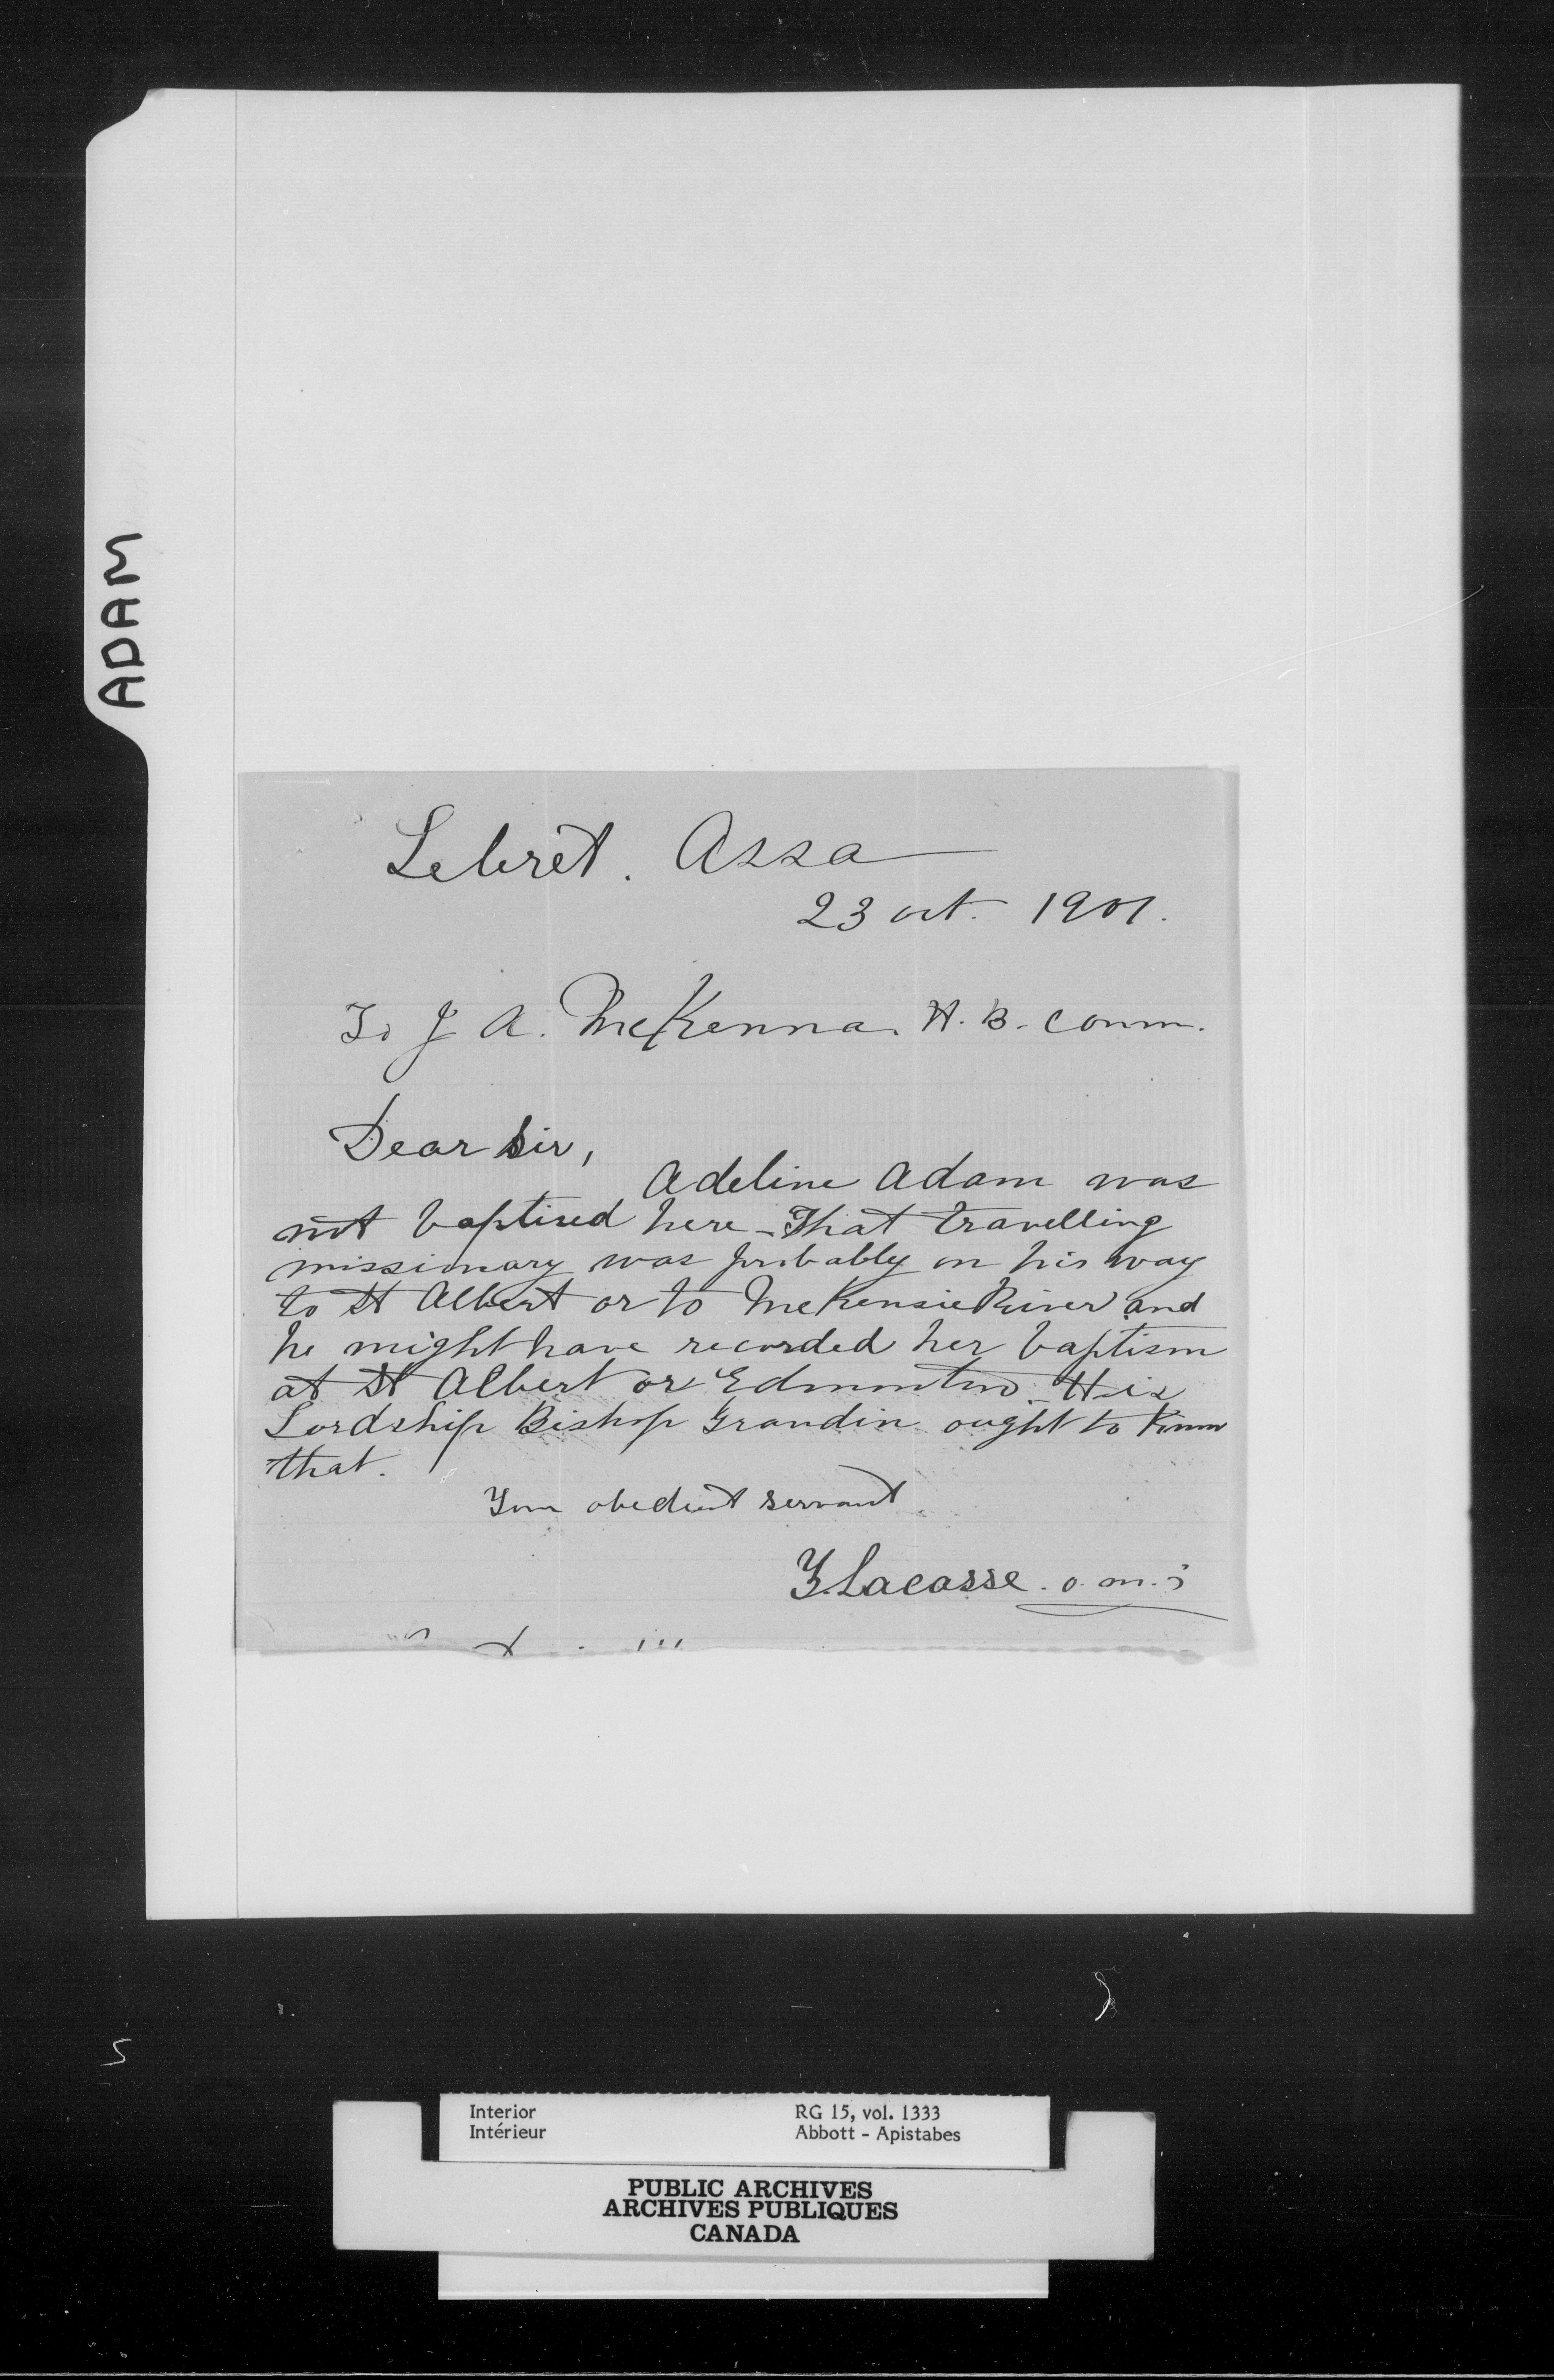 ADAM
Lebret. Assa
23 oct. 1901.
To J A. McKenna. H. B. Comm.
Dear Sir,
Adeline Adam was
not baptised here - That travelling
missionary was probably on his way
to St Albert or to McKensie River and
he might have recorded her baptism
at St Albert or Edmonton - His
Lordship Bishop Grandin ought to know
that.
Your obedient servant
Z. Lacasse. o. m. i
Interior RG 15, vol. 1333
Intérieur Abbott - Apistabes
PUBLIC ARCHIVES
ARCHIVES PUBLIQUES
CANADA